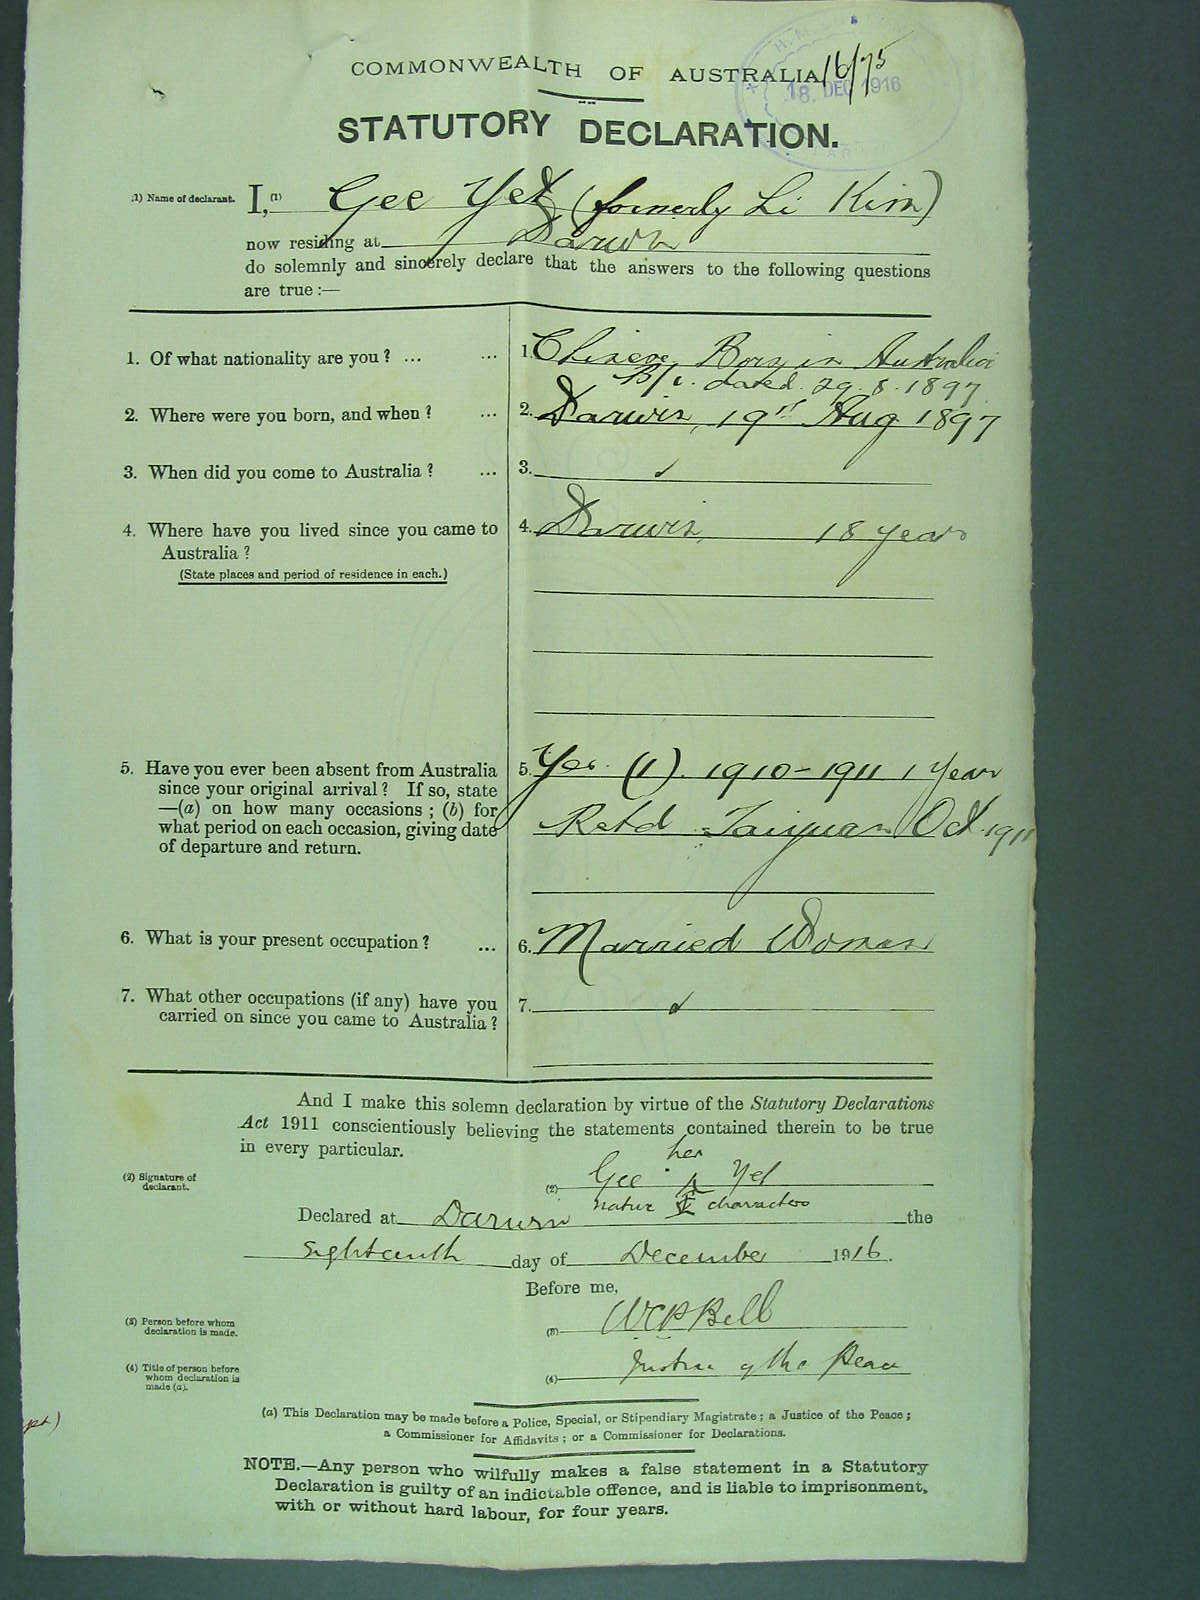 16/75
COMMONWEALTH OF AUSTRALIA
18. DEC 1916
STATUTORY DECLARATION.
(1) Name of declarant. I, (1) Gee Yet (formerly Li Kim)
now residing at Darwin
do solemnly and sincerely declare that the answers to the following questions
are true:—
1. Of what nationality are you? ... ... 1. Chinese Born in Australia
B/c. dated. 29. 8. 1897
2. Where were you born, and when? ... 2. Darwin, 19th Aug 1897
3. When did you come to Australia? ... 3.
4. Where have you lived since you came to 4. Darwin, 18 years
Australia?
(State places and period of residence in each.)
5. Have you ever been absent from Australia 5. Yes. (1). 1910-1911 1 Year
since your original arrival? If so, state
—(a) on how many occasions; (b) for Retd Taiyuan Oct. 1911
what period on each occasion, giving date
of departure and return.
6. What is your present occupation? ... 6. Married Woman
7. What other occupations (if any) have you 7.
carried on since you came to Australia?
And I make this solemn declaration by virtue of the Statutory Declarations
Act 1911 conscientiously believing the statements contained therein to be true
in every particular.
her
(2) Signature of
declarant.
(2) Gee Yet
native characters
Declared at Darwin the
Eighteenth day of December 1916.
Before me,
(3) Person before whom
declaration is made.
(3) WCP Bell
(4) Title of person before
whom declaration is
made (a).
(4) Justice of the Peace
(a) This Declaration may be made before a Police, Special, or Stipendiary Magistrate; a Justice of the Peace;
a Commissioner for Affidavits; or a Commissioner for Declarations.
NOTE.—Any person who wilfully makes a false statement in a Statutory
Declaration is guilty of an indictable offence, and is liable to imprisonment,
with or without hard labour, for four years.